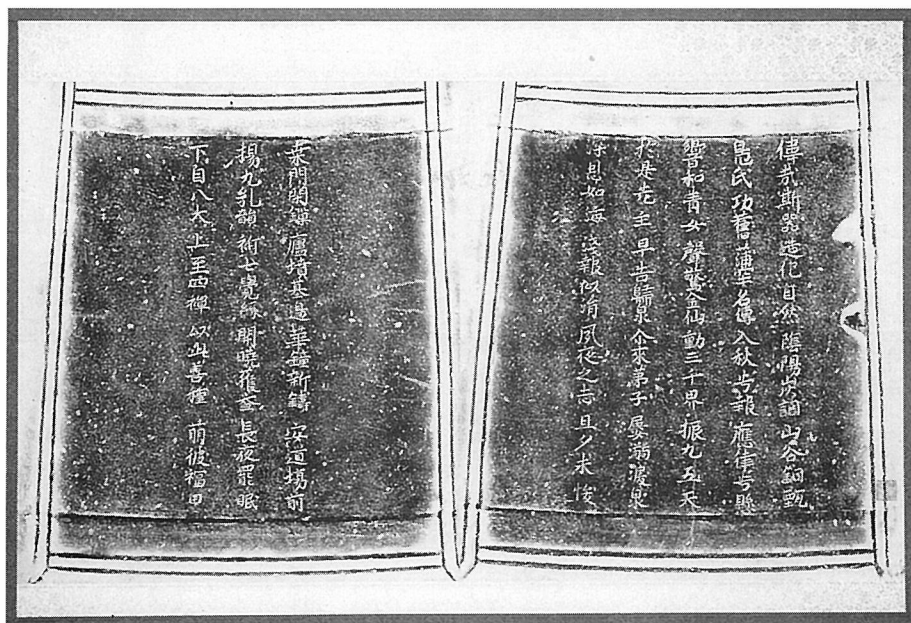 偉哉斯器造化自然陰陽炭調山谷銅甄
鳧氏功舊蒲牢名傳入秋告報應律告縣
響和青女聲驚金仙動三千界振九五天
於是先主早告歸泉尒來弟子屡溺淚泉
深恩如海淺報似涓夙夜之志旦夕未悛
桑門開鏁廬墳墓邊華鐘新鑄安道場前
揚九乳韻術七覺緣開曉獲益長夜罷眠
下自八大上至四禪以此善種萌彼福田